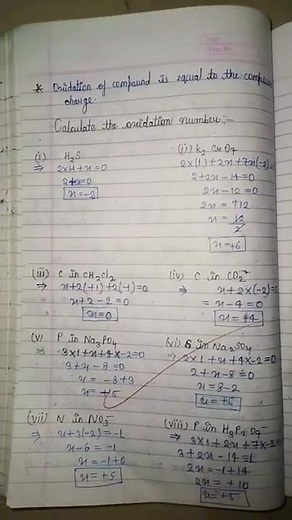 * Oxidation of compound is equal to the
charge.
Calculate the oxidation number:-
(i) H2S
⇒ 2x1+x=0
2+x=0
x=-2
(ii) K2 Cr O7
2x(1)+2x+7x(-2)
2+2x-14=0
2x-12=0
2x = +12
x = 12/2
x=+6
(iii) C in CH2Cl2
⇒ x+2(+1)+2(-1)=0
x+2-2=0
x=0
(iv) C in CO2
⇒ x+2x(-2)=0
x-4=0
x=+4
(v) P in Na3PO4
3x1+x+4x-2=0
3+x-8=0
x = -3+8
x = +5
(vi) S in Na2SO4
⇒ 2x1+x+4x-2=0
2+x-8=0
x=8-2
x=+6
(vii) N in NO3-
⇒ x+3(-2)=-1
x-6=-1
x=-1+6
x=+5
(viii) P in H3P2O7-
⇒ 3x1+2x+7x-2
3+2x-14=1
2x=-1+14
2x = +10
x=+5